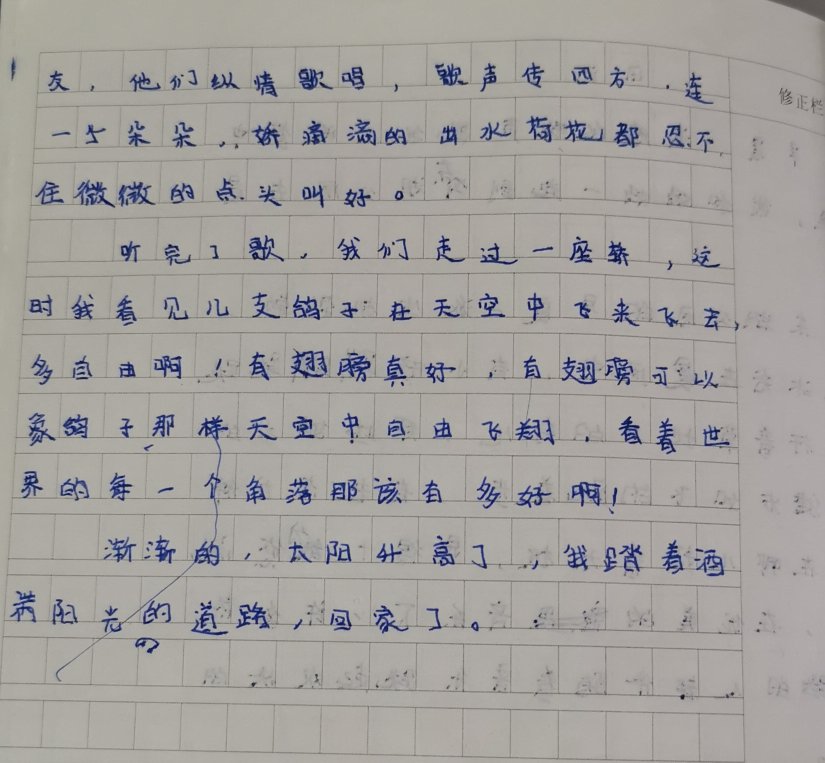 友，他们纵情歌唱，歌声传四方，连
一朵朵，娇滴滴的出水荷花都忍不
住微微的点头叫好。
听完了歌，我们走过一座轿，这
时我看见几支鸽子在天空中飞来飞去，
多自由啊！有翅膀真好，有翅膀可以
象鸽子那样天空中自由飞翔，看着世
界的每一个角落那该有多好啊！
渐渐的，太阳升高了，我踏着洒
满阳光的道路，回家了。
修正栏